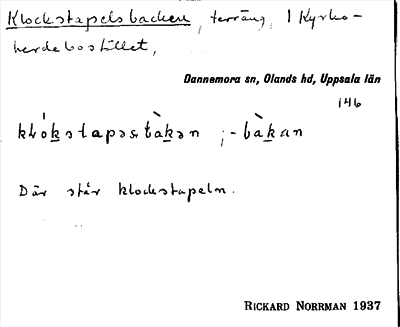 Klockstapelsbacken, terräng, i Kyrko-
herdebostället,
Dannemora sn, Olands hd, Uppsala län
146
Där står klockstapeln.
RICKARD NORRMAN 1937